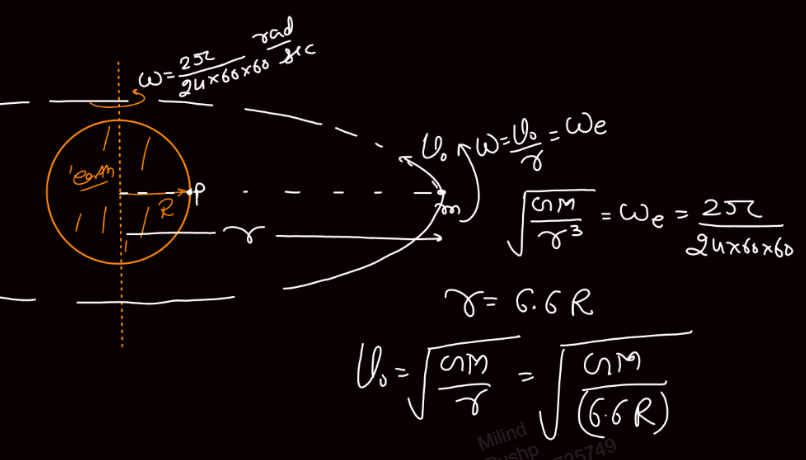 ω = 2π / 24×60×60 rad/sec
earth
R
P
r
m
v₀
ω = v₀/r = ωe
√(GM/r³) = ωe = 2π / 24×60×60
r = 6.6 R
v₀ = √(GM/r) = √(GM/(6.6R))
Milind